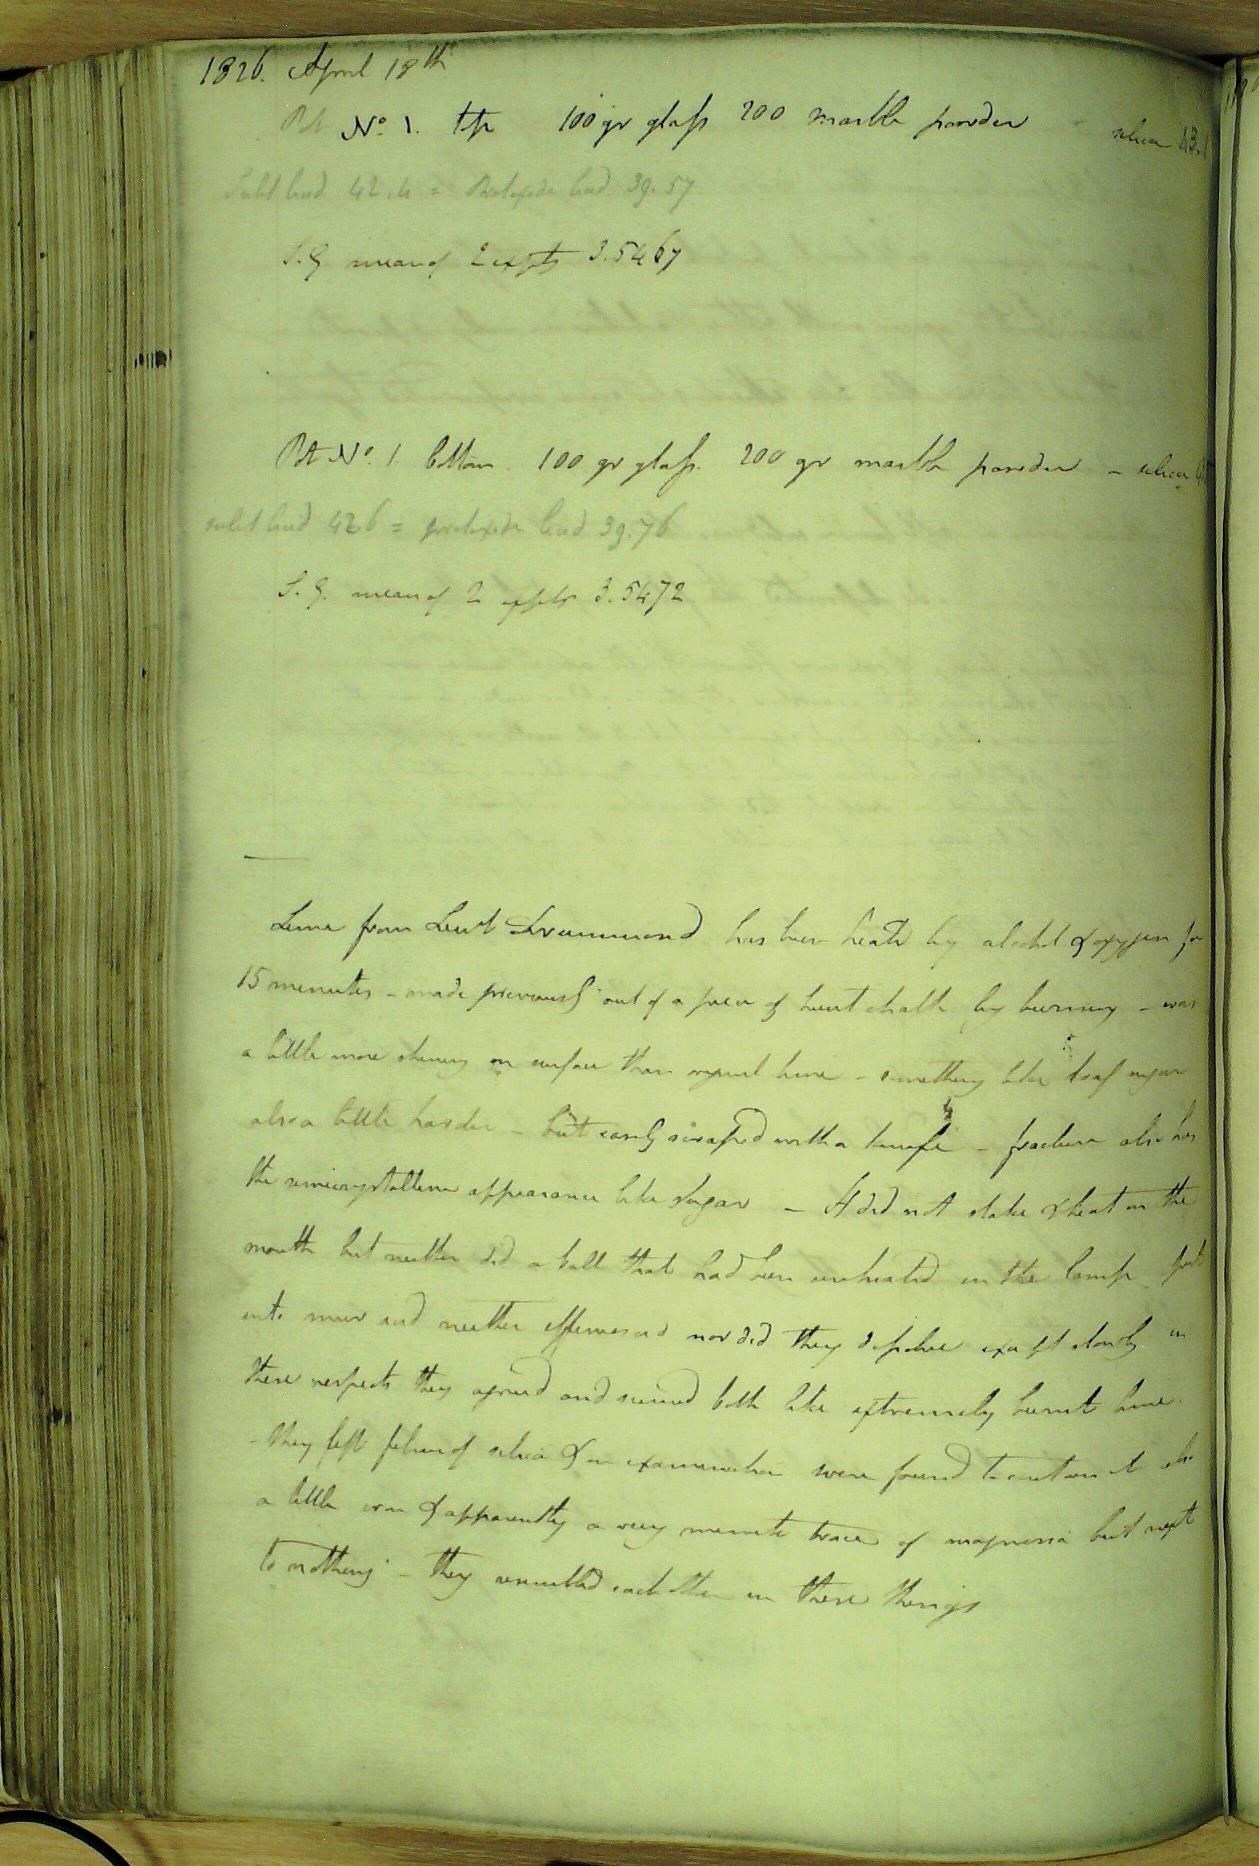 1826. April 18th
Pot No. 1. top 100 gr glass 200 marble powder silica 43.1
Sult lead 42.4 = Protoxide lead 39.57
S.G mean of 2 expts 3.5467
Pot No. 1 bottom. 100 gr glass. 200 gr marble powder - silica
sulct lead 426 = protoxide lead 39.76
S.G. mean of 2 expts 3.5472
Lime from Lieut Drummond has been heated by alcohol & oxygen for
15 minutes - made previously out of a piece of burnt chalk by burning - was
a little more shining on surface than original lime - something like loaf sugar
also a little harder - but easily scraped with a knife - fracture also has
the semicrystalline appearance like sugar - It did not slake & heat in the
mouth but neither did a ball that had been unheated in the lamp put
into mur acid neither effervesced nor did they dissolve except slowly in
these respects they agreed and seemed both like extremely burnt lime.
- they left films of silica & on examination were found to contain it also
a little iron & apparently a very minute trace of magnesia but next
to nothing - they resembled each other in these things